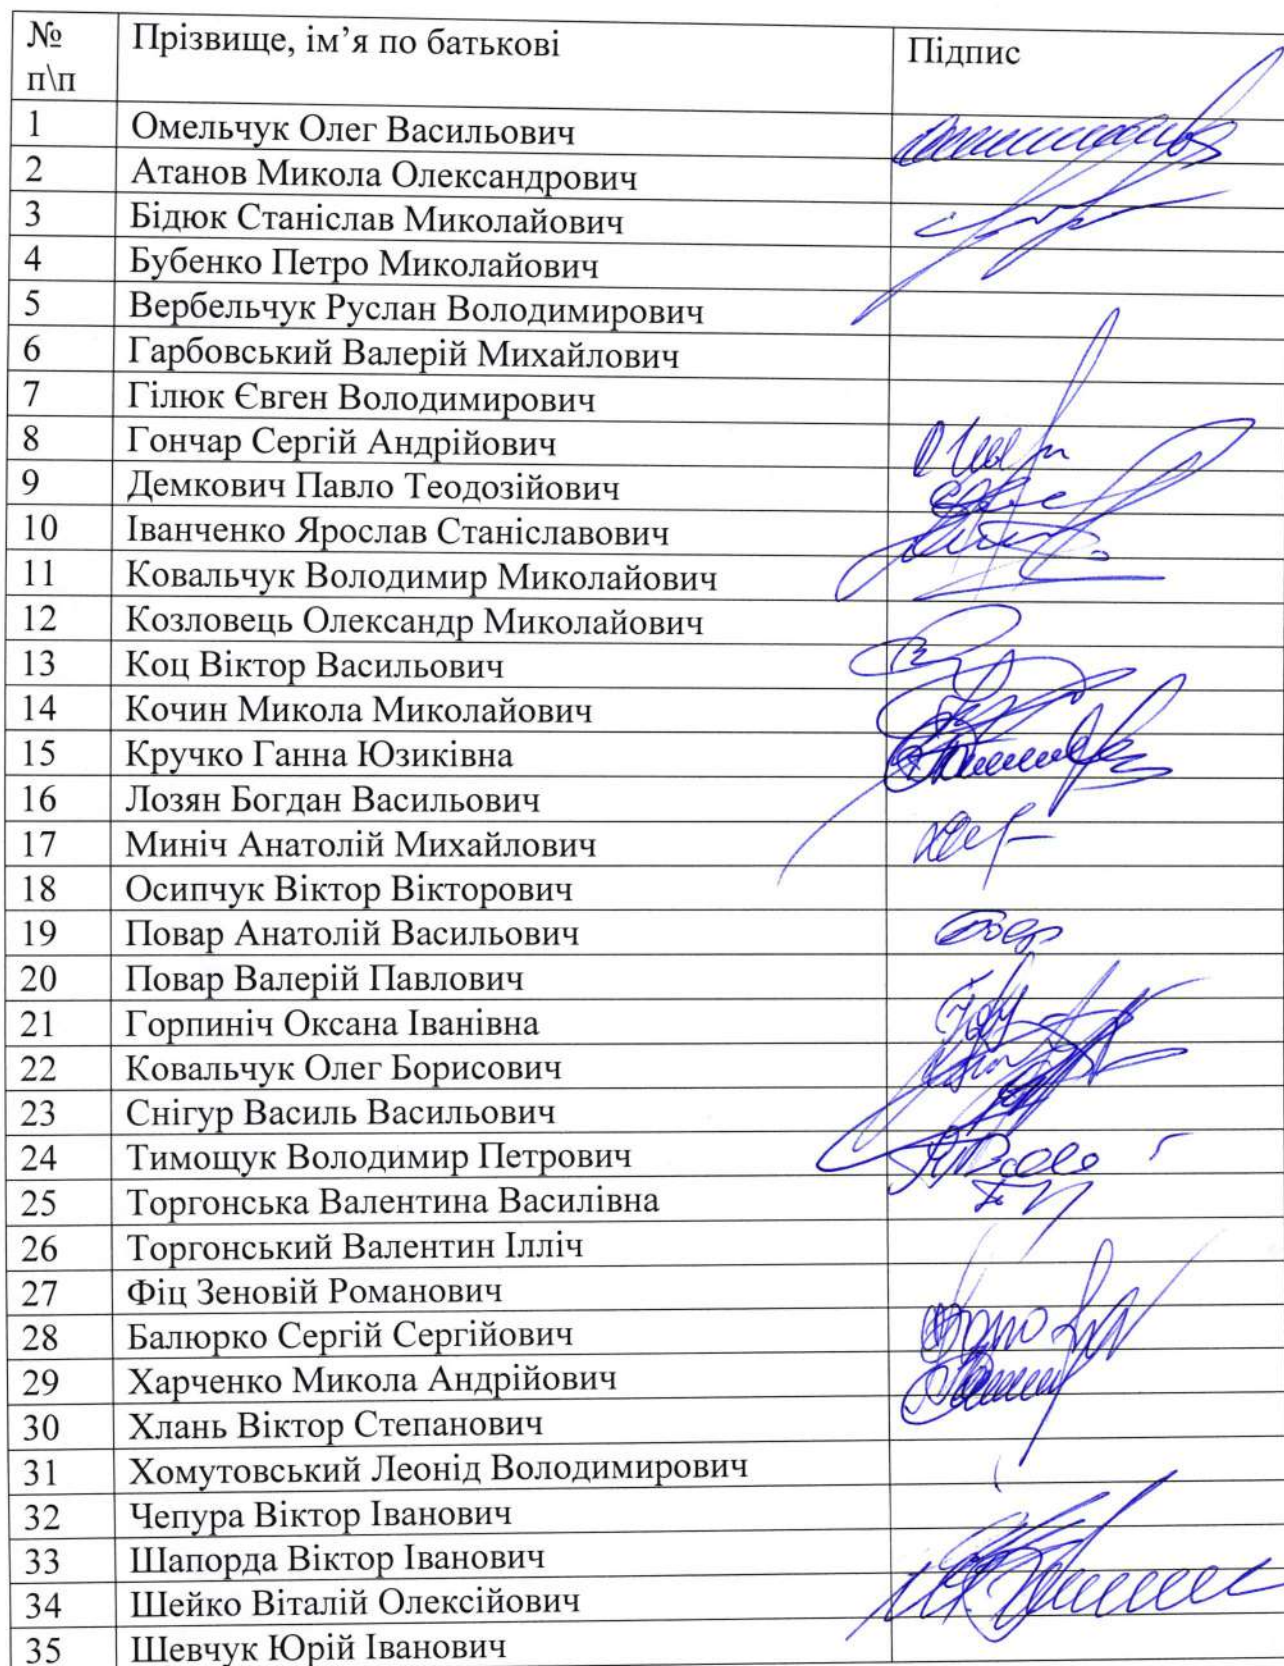 № п\п Прізвище, ім’я по батькові Підпис
1 Омельчук Олег Васильович
2 Атанов Микола Олександрович
3 Бідюк Станіслав Миколайович
4 Бубенко Петро Миколайович
5 Вербельчук Руслан Володимирович
6 Гарбовський Валерій Михайлович
7 Гілюк Євген Володимирович
8 Гончар Сергій Андрійович
9 Демкович Павло Теодозійович
10 Іванченко Ярослав Станіславович
11 Ковальчук Володимир Миколайович
12 Козловець Олександр Миколайович
13 Коц Віктор Васильович
14 Кочин Микола Миколайович
15 Кручко Ганна Юзиківна
16 Лозян Богдан Васильович
17 Миніч Анатолій Михайлович
18 Осипчук Віктор Вікторович
19 Повар Анатолій Васильович
20 Повар Валерій Павлович
21 Горпиніч Оксана Іванівна
22 Ковальчук Олег Борисович
23 Снігур Василь Васильович
24 Тимощук Володимир Петрович
25 Торгонська Валентина Василівна
26 Торгонський Валентин Ілліч
27 Фіц Зеновій Романович
28 Балюрко Сергій Сергійович
29 Харченко Микола Андрійович
30 Хлань Віктор Степанович
31 Хомутовський Леонід Володимирович
32 Чепура Віктор Іванович
33 Шапорда Віктор Іванович
34 Шейко Віталій Олексійович
35 Шевчук Юрій Іванович